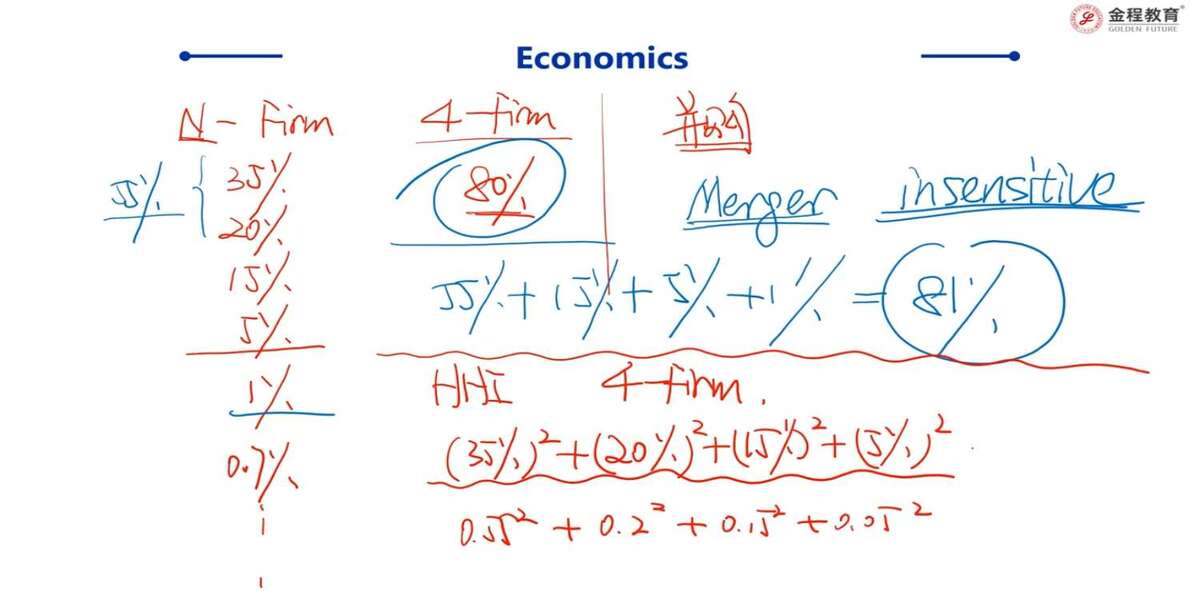 金程教育®
GOLDEN FUTURE
Economics
N-Firm 4-firm 并购
55% { 35% 80% Merger insensitive
20%
15% 55%+15%+5%+1% = 81%
5%
1% HHI 4-firm.
0.7% (35%)²+(20%)²+(15%)²+(5%)²
0.55² + 0.2² + 0.15² + 0.05²